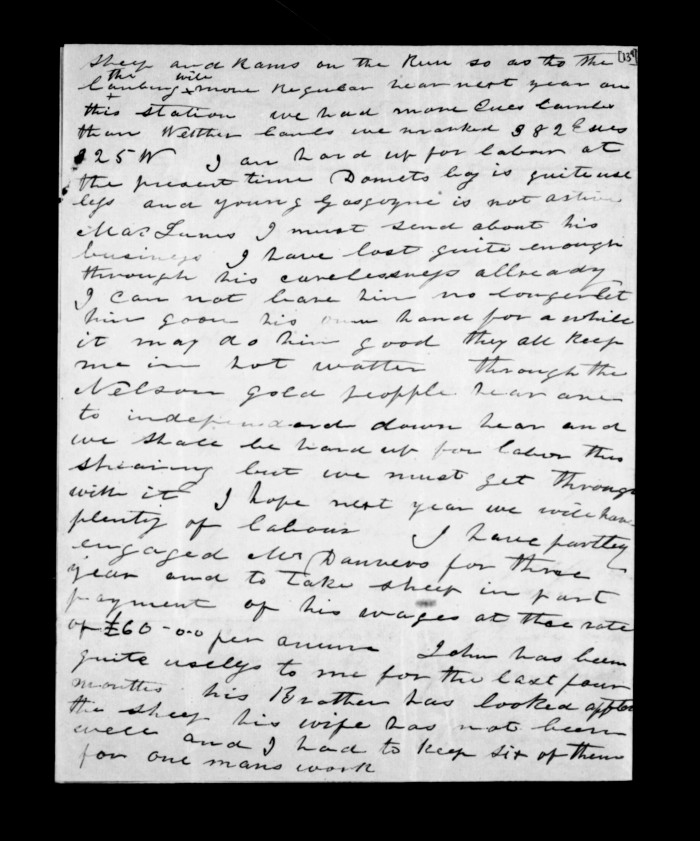 sheep and Rams on the Run so as to the [13]
the will
lambing more Regular hear next year on
this station we had more Ewes lambs
than Wether lambs we marked 382 Ewes
325 W I am hard up for labour at
the present time Domets leg is quite use
less and young Gasgoyne is not active
MacInnis I must send about his
business I have lost quite enough
through his carelessness allready
I can not leave him no longer let
him go on his own hand for a while
it may do him good they all keep
me in hot watter through the
Nelson gold peopple hear are
to independ and down hear and
we shall be hard up for labor this
shearing but we must get through
with it I hope next year we will have
plenty of labour I have partley
engaged Mr Danvers for three
year and to take sheep in part
payment of his wages at the rate
of £60-0-0 per annum John has been
quite useless to me for the last four
months his Brother has looked after
the sheep his wife has not been
well and I had to keep six of them
for one mans work